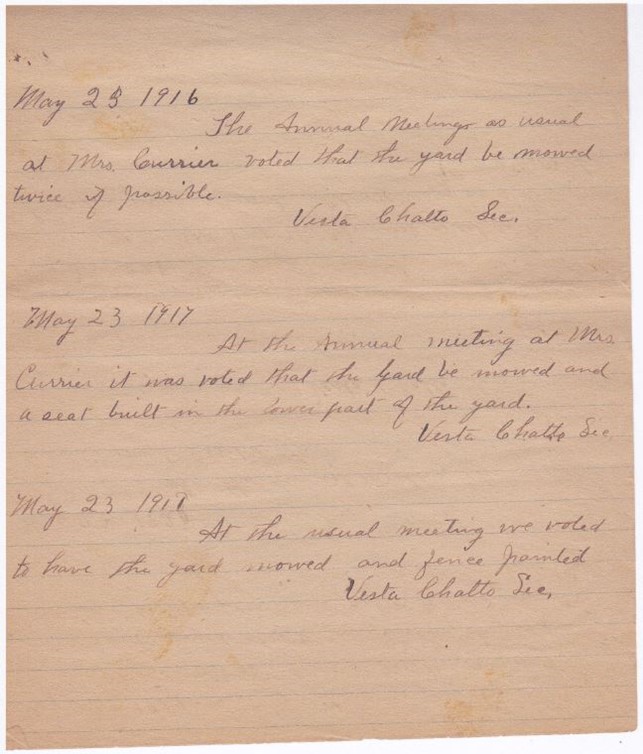 May 23 1916
The Annual Meetings as usual
at Mrs. Currier voted that the yard be mowed
twice if possible.
Vesta Chatto Sec.
May 23 1917
At the Annual meeting at Mrs.
Currier it was voted that the Yard be mowed and
a seat built in the lower part of the yard.
Vesta Chatto Sec.
May 23
At the usual meeting we voted
to have the yard mowed and fence painted
Vesta Chatto Sec.